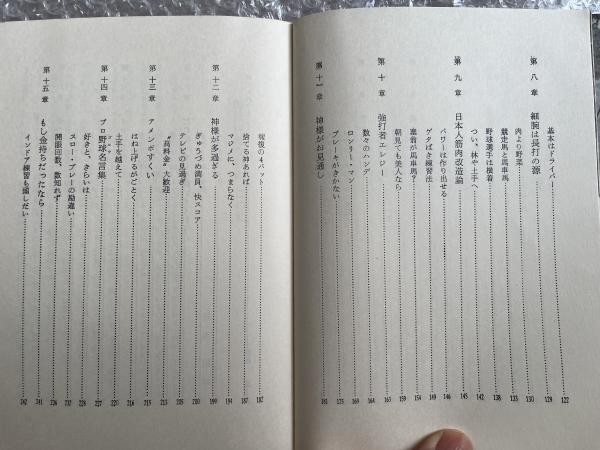 基本はドライバー 122
第八章 細腕は長打の源 129
肉より野菜 130
競走馬と馬車馬 133
野球選手は横着 138
つい、林や土手へ 142
第九章 日本人筋肉改造論 145
パワーは作り出せる 146
ゲタばき練習法 149
塞翁が馬車馬? 154
朝見ても美人なら 159
第十章 強打者エレジー 163
数々のハンデ 164
ロンリー・マン 168
ブレーキがきかない 175
第十一章 神様がお見通し 181
報復の4パット 182
捨てる神あれば 187
マジメに、つまらなく 194
第十二章 神様が多過ぎる 199
ぎゅうづめ満員、快スコア 200
テレビの見過ぎ 208
"高料金"大歓迎 213
第十三章 アメンボすくい 215
はね上げるがごとく 216
土手を越えて 220
第十四章 プロ野球名言集 227
好きと、きらいは 228
スロー・プレーの勘違い 232
開眼回数、数知れず 236
第十五章 もし金持ちだったなら 241
インドア練習も捕したい 242